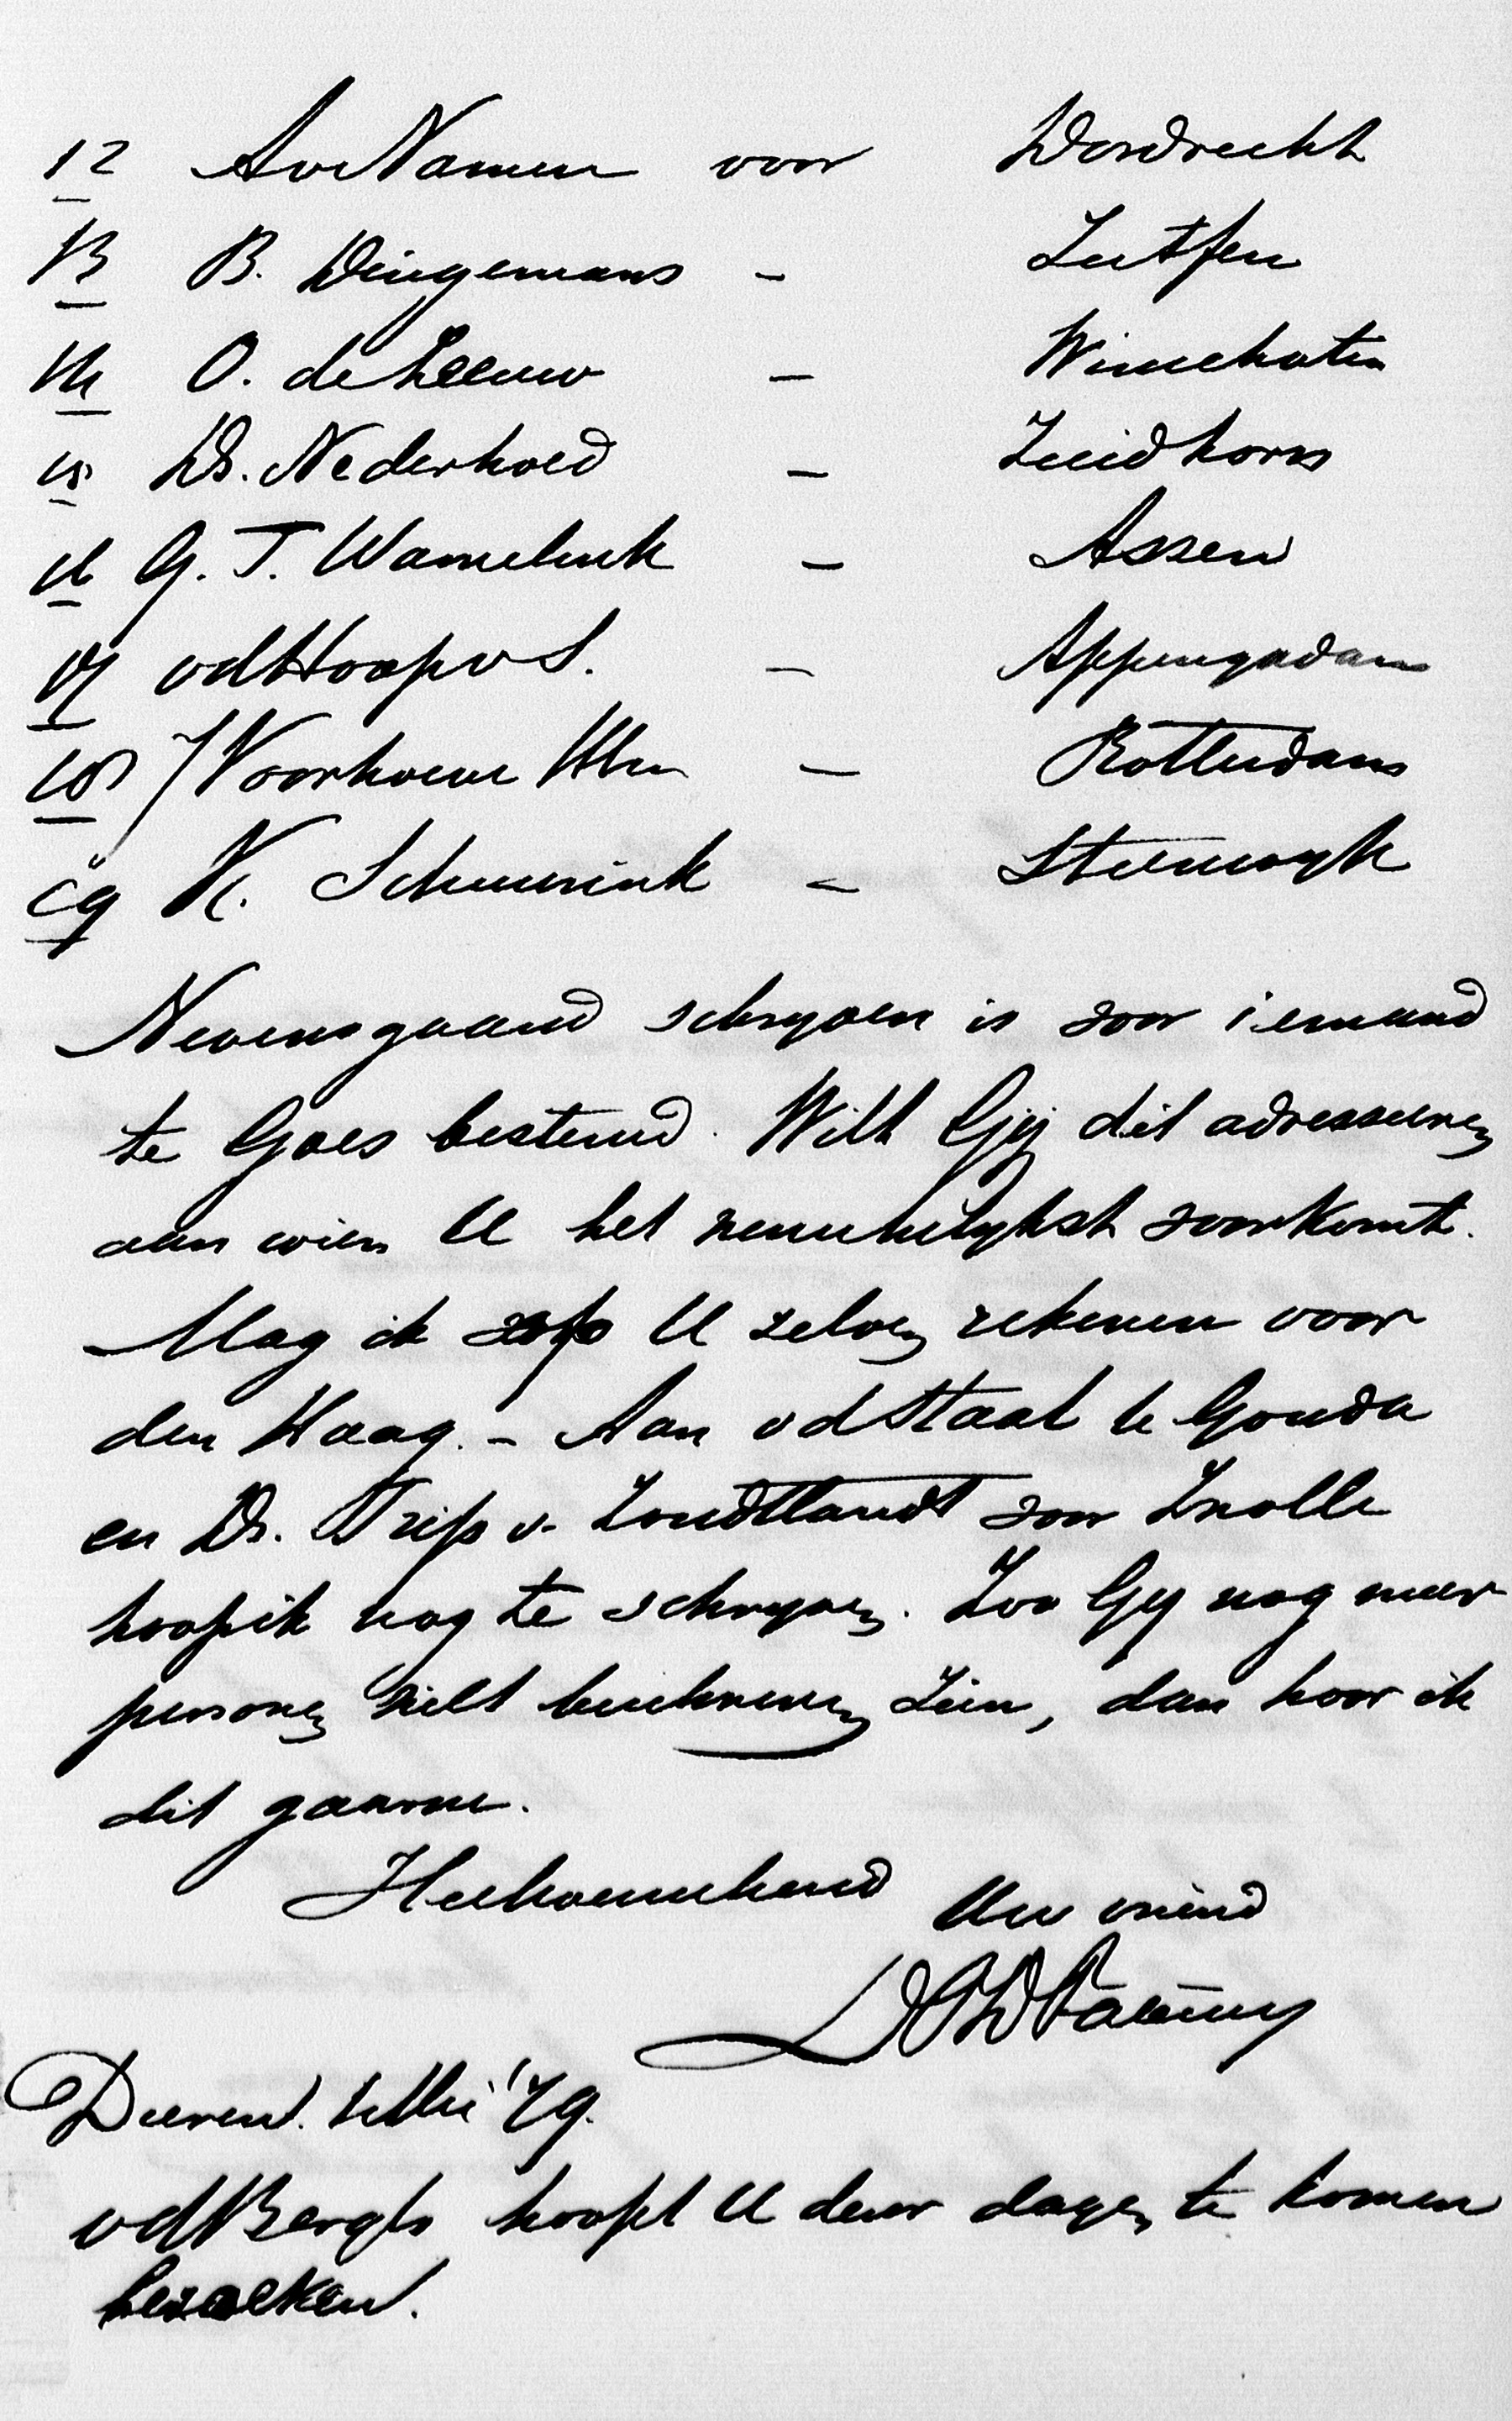 12 AvNamen voor Dordrecht
13 B. Dingemans - Zutfen
14 O. de Leeuw - Winschoten
15 Ds. Nederhoed - Zuidhorn
16 G. T. Wamelink - Assen
17 vdHoop v S. - Appingadam
18 J Voorhoeve HCzn - Rotterdam
19 K. Schuurink - Steenwyk
Nevensgaand schryven is voor iemand
te Goes bestemd. Wilt Gij dit adresseeren
aan wien U het verkieslykst voorkomt.
Mag ik op U zelven rekenen voor
den Haag. - Aan vd Staal te Gouda
en Ds. Trip v. Zoudtlandt voor Zwolle
hoop ik nog te schryven. Zoo Gy nog meer
personen wilt beschreven zien, dan hoor ik
dit gaarne.
Heilwenschend Uw vriend
Dieren. Mei '79.
vdBergh hoopt U dezer dagen te komen
bezoeken.